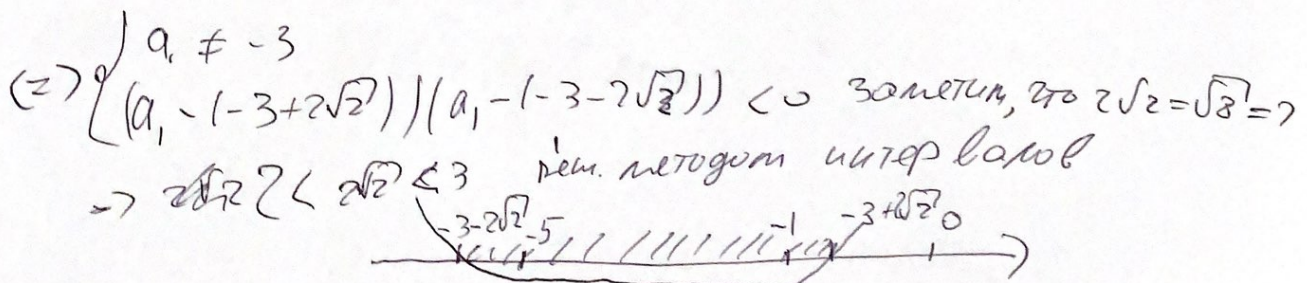 a₁ ≠ -3
(=) { (a₁ - (-3+2√2))(a₁ - (-3-2√2)) < 0 Заметим, что 2√2 = √8 =>
=> 2 < 2√2 < 3 реш. методом интервалов
-3-2√2 -5 -1 -3+2√2 0